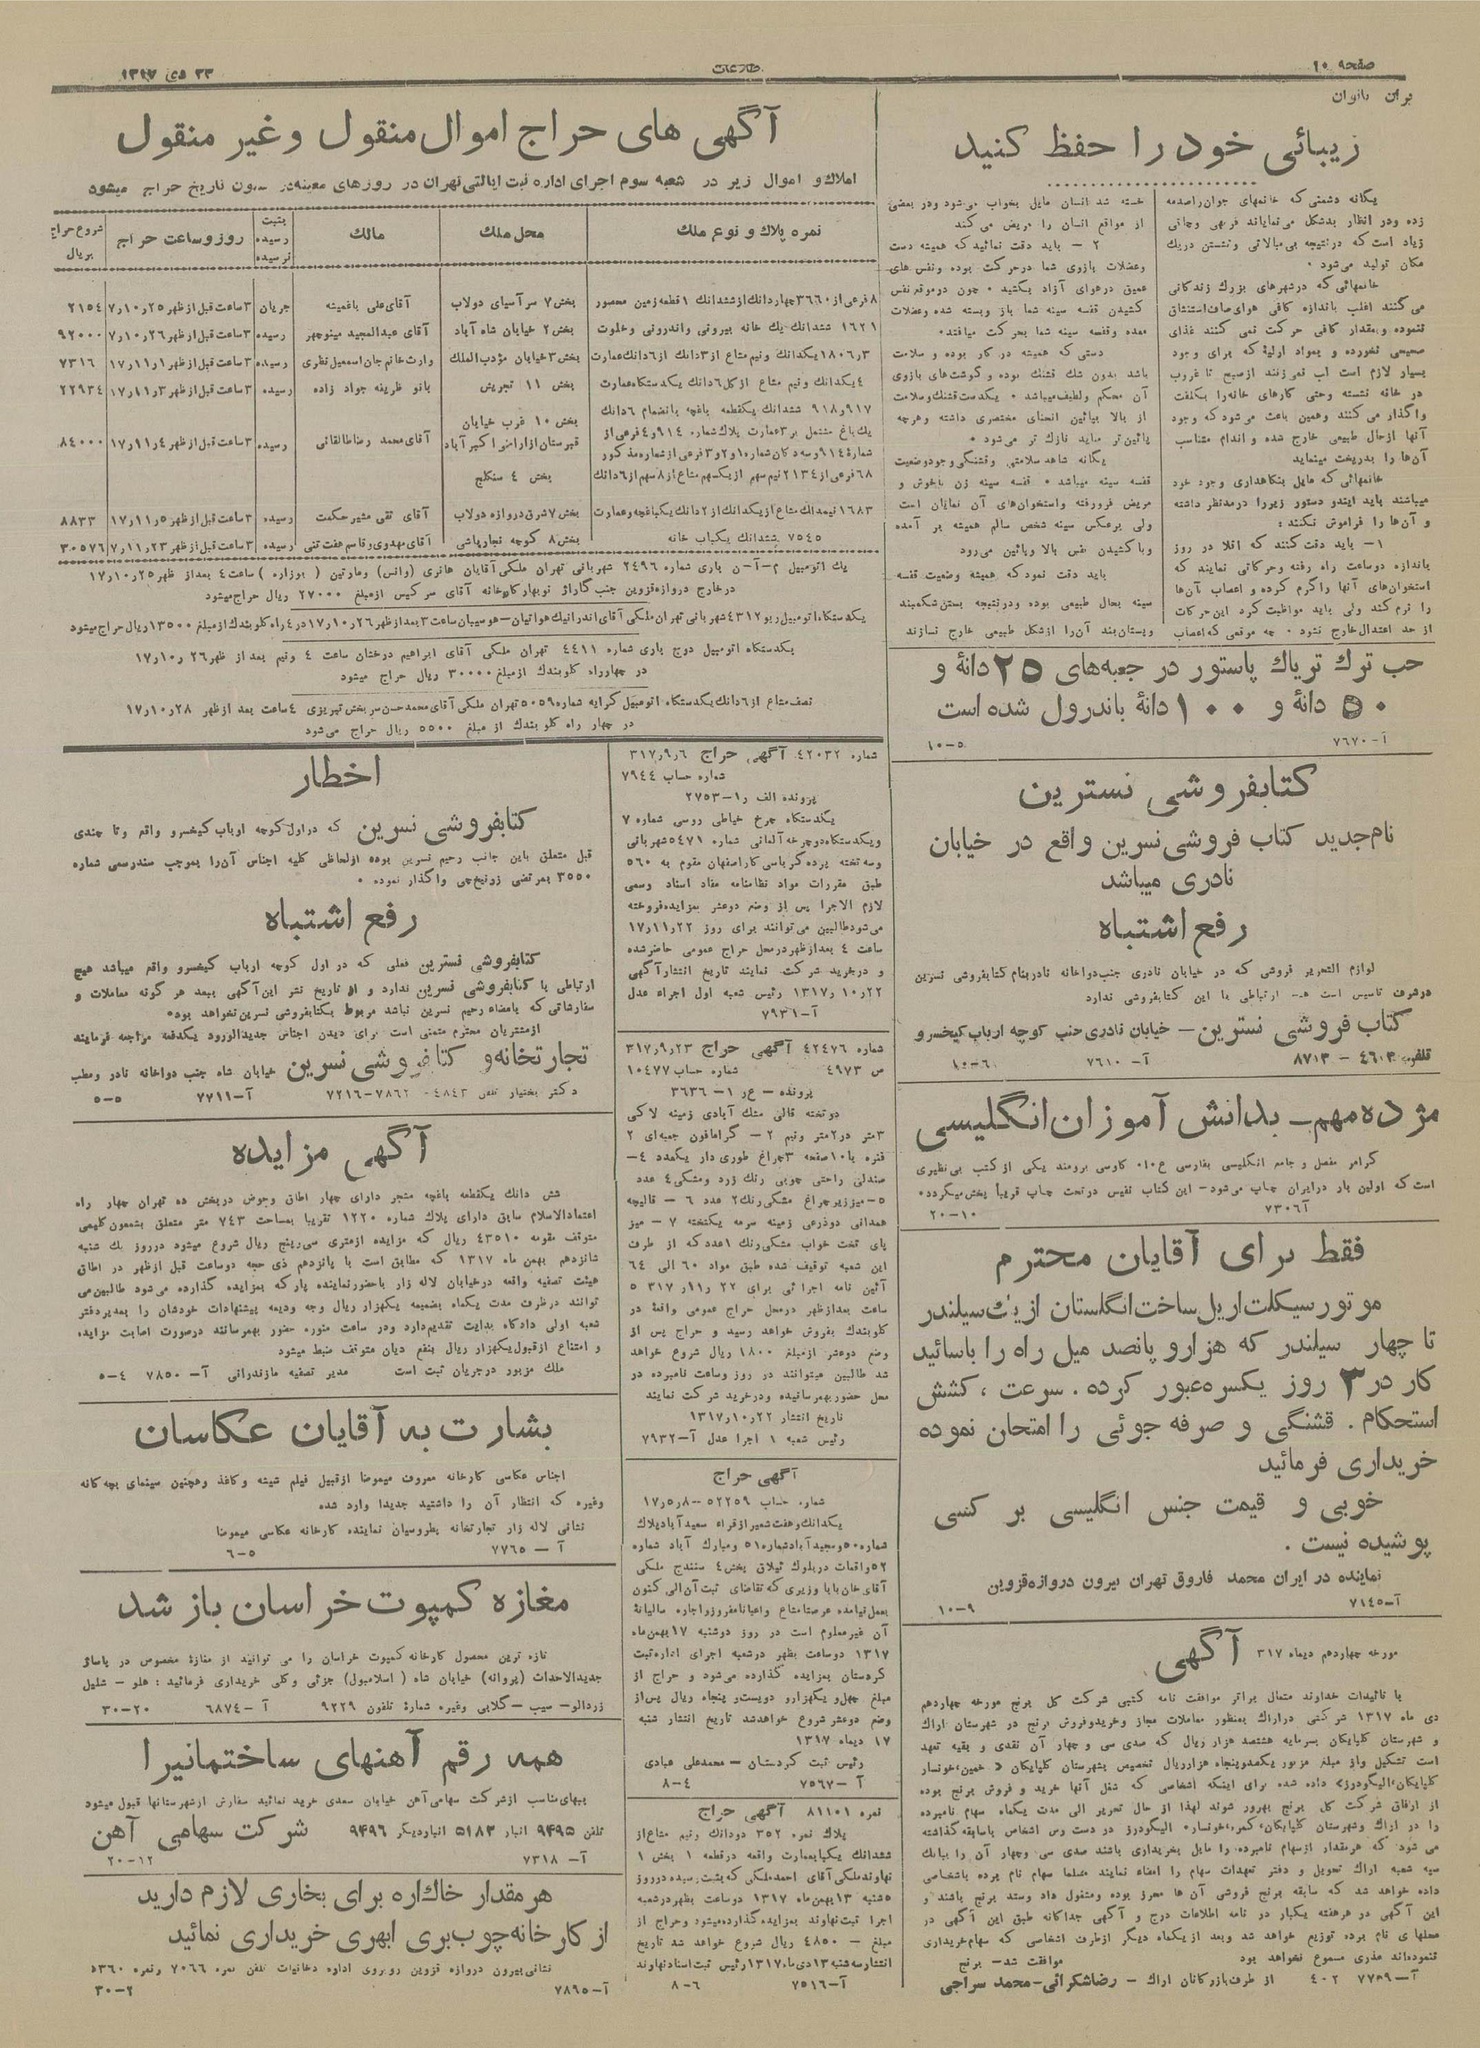 صفحه ۱۰
اطلاعات
۲۳ دی ۱۳۱۷
برای بانوان
زیبائی خود را حفظ کنید
یگانه دشمنی که خانمهای جوان را صدمه
زده و در انظار بدشکل می‌نمایاند فربهی و چاقی
زیاد است که در نتیجه بی‌مبالاتی و نشستن در یک
مکان تولید می‌شود .
خانمهائی که در شهرهای بزرک زندگانی
می‌کنند اغلب باندازه کافی هوای صاف استنشاق
ننموده و بمقدار کافی حرکت نمی کنند غذای
صحیحی نخورده و بمواد اولیهٔ که برای وجود
بسیار لازم است لب نمی‌زنند از صبح تا غروب
در خانه نشسته و حتی کارهای خانه را بکلفت
واگذار می‌کنند و همین باعث می‌شود که وجود
آنها از حال طبیعی خارج شده و اندام متناسب
آن‌ها را بدریخت مینماید
خانمهائی که مایل بنگاهداری وجود خود
میباشند باید ایندو دستور زیر را در مدنظر داشته
و آن‌ها را فراموش نکنند :
۱- باید دقت کنند که اقلا در روز
باندازه دوساعت راه رفته و حرکاتی نمایند که
استخوان‌های آنها را گرم کرده و اعصاب آن‌ها
را نرم کند ولی باید مواظبت کرد این حرکات
از حد اعتدال خارج نشود . چه موقعی که اعصاب
خسته شد انسان مایل بخواب می‌شود و در بعضی
از مواقع انسان را مریض می کند
۲ - باید دقت نمائید که همیشه دست
و عضلات بازوی شما در حرکت بوده و نفس های
عمیق در هوای آزاد بکشید . چون در موقع نفس
کشیدن قفسه سینه شما باز و بسته شده و عضلات
معده و قفسه سینه شما بحرکت میافتد .
دستی که همیشه در کار بوده و سلامت
باشد بدون شک قشنک بوده و گوشت‌های بازوی
آن محکم و لطیف میباشد . یکدست قشنک و سلامت
از بالا بپائین انحنای مختصری داشته و هرچه
پائین‌تر میاید نازک تر می‌شود .
یگانه شاهد سلامتی و قشنگی وجود وضعیت
قفسه سینه میباشد . قفسه سینه زن ناخوش و
مریض فرورفته و استخوان‌های آن نمایان است
ولی برعکس سینه شخص سالم همیشه بر آمده
و با کشیدن نفس بالا و پائین می‌رود
باید دقت نمود که همیشه وضعیت قفسه
سینه بحال طبیعی بوده و در نتیجه بستن شکمبند
و پستان‌بند آن را از شکل طبیعی خارج نسازند
حب ترک تریاک پاستور در جعبه‌های ۲۵ دانهٔ و
۵۰ دانهٔ و ۱۰۰ دانهٔ باندرول شده است
آ-۷۶۷۰ ۱۰-۵
کتابفروشی نسترین
نام جدید کتاب فروشی نسرین واقع در خیابان
نادری میباشد
رفع اشتباه
لوازم التحریر فروشی که در خیابان نادری جنب دواخانه نادر بنام کتابفروشی نسرین
در شرف تاسیس است هیچ ارتباطی با این کتابفروشی ندارد
کتاب فروشی نسترین – خیابان نادری جنب کوچه ارباب کیخسرو
تلفن ۴۶۱۳ – ۸۷۱۳ آ- ۷۶۱۰ ۱۰-۶
مژده مهم – بدانش آموزان انگلیسی
گرامر مفصل و جامع انگلیسی بفارسی ع۱۰ کاوسی برومند یکی از کتب بی‌نظیری
است که اولین بار در ایران چاپ می‌شود – این کتاب نفیس در تحت چاپ قریباً پخش میگردد .
آ ۷۳۰۶ ۲۰-۱۰
فقط برای آقایان محترم
موتور سیکلت اریل ساخت انگلستان از یک سیلندر
تا چهار سیلندر که هزار و پانصد میل راه را باسائید
کار در ۳ روز یکسره عبور کرده . سرعت ، کشش
استحکام . قشنگی و صرفه جوئی را امتحان نموده
خریداری فرمائید
خوبی و قیمت جنس انگلیسی بر کسی
پوشیده نیست .
نماینده در ایران محمد فاروق تهران بیرون دروازه قزوین
آ-۷۱۴۵ ۱۰-۹
آگهی
مورخه چهاردهم دیماه ۳۱۷
با تائیدات خداوند متعال برابر موافقت نامه کتبی شرکت کل برنج مورخه چهاردهم
دی ماه ۱۳۱۷ شرکتی در اراک بمنظور معاملات مجاز و خرید و فروش برنج در شهرستان اراک
و شهرستان گلپایگان بسرمایه هشتصد هزار ریال که صدی سی و چهار آن نقدی و بقیه تعهد
است تشکیل و از مبلغ مزبور یکصد و پنجاه هزار ریال تخصیص بشهرستان گلپایگان «خمین، خونسار
گلپایگان، الیگودرز» داده شده برای اینکه اشخاصی که شغل آنها خرید و فروش برنج بوده
از ارفاق شرکت کل برنج بهره‌ور شوند لهذا از حال تحریر الی مدت یکماه سهام نامبرده
را در اراک و شهرستان گلپایگان، کمره، خونسار، الیگودرز در دست رس اشخاص باسابقه گذاشته
می شود که هر مقدار از سهام نامبرده را مایل بخریداری باشند صدی سی و چهار آن را ببانک
سپه شعبه اراک تحویل و دفتر تعهدات سهام را امضاء نمایند مسلما سهام نام برده باشخاصی
داده خواهد شد که سابقه برنج فروشی آن ها محرز بوده و مشغول داد وستد برنج باشند و
این آگهی در هر هفته یکبار در نامه اطلاعات درج و آگهی جداگانه طبق این آگهی در
محلهای نام برده توزیع خواهد شد و بعد از یکماه دیگر از طرف اشخاصی که سهام خریداری
ننموده‌اند عذری مسموع نخواهد بود موافقت شد – برنج
آ-۷۷۳۹ ۲-۴ از طرف بازرگانان اراک – رضا شکرائی – محمد سراجی
آگهی های حراج اموال منقول و غیر منقول
املاک و اموال زیر در شعبه سوم اجرای اداره ثبت ایالتی تهران در روزهای معینه در ستون تاریخ حراج میشود
نمره پلاک و نوع ملک | محل ملک | مالک | بثبت رسیده نرسیده | روز و ساعت حراج | شروع حراج بریال
۸ فرعی از ۳۶۶۰ چهار دانک از ششدانک ۱ قطعه زمین محصور | بخش ۷ سر آسیای دولاب | آقای علی بافمینه | جریان | ۳ ساعت قبل از ظهر ۲۵ر۱۰ر۷ | ۲۱۵۴
۱۶۲۱ ششدانک یک خانه بیرونی و اندرونی و خلوت | بخش ۲ خیابان شاه آباد | آقای عبدالمجید مینوچهر | رسیده | ۳ ساعت قبل از ظهر ۲۶ر۱۰ر۷ | ۹۲۰۰۰
۱۸۰۶ر۳ یکدانک و نیم متاع از ۳ دانک از ۶ دانک عمارت | بخش ۳ خیابان مؤدب الملک | وارث خانم جان اسمعیل نظری | رسیده | ۳ ساعت قبل از ظهر ۱ر۱۱ر۱۷ | ۷۳۱۶
۴ یکدانک و نیم متاع از کل ۶ دانک یکدستگاه عمارت | بخش ۱۱ تجریش | بانو ظریفه جواد زاده | رسیده | ۳ ساعت قبل از ظهر ۳ر۱۱ر۱۷ | ۲۲۹۳۴
۹۱۷و۹۱۸ ششدانک یکقطعه باغچه بانضمام ۶ دانک
یک باغ مشتمل بر ۳ عمارت پلاک شماره ۹۱۴ و ۴ فرعی از
شماره ۹۱۴ و سه دکان شماره ۱ و ۲ و ۳ فرعی از شماره مذکور | بخش ۱۰ غرب خیابان قبرستان از اراضی اکبر آباد | آقای محمد رضا طالقانی | رسیده | ۳ ساعت قبل از ظهر ۴ر۱۱ر۱۷ | ۸۴۰۰۰
۶۸ فرعی از ۲۱۳۴ نیم سهم از یکسهم متاع از ۸ سهم از ۶ دانک | بخش ۴ سنگلج
۱۶۸۳ نیمدانک متاع از یکدانک از ۲ دانک یکباغچه و عمارت | بخش ۷ شرق دروازه دولاب | آقای تقی مشیر حکمت | رسیده | ۳ ساعت قبل از ظهر ۵ر۱۱ر۱۷ | ۸۸۳۳
۷۵۴۵ ششدانک یکباب خانه | بخش ۸ کوچه نجار باشی | آقای مهدوی و قاسم عفت تنی | رسیده | ۳ ساعت قبل از ظهر ۲۳ر۱۱ر۷ | ۳۰۵۷۶
یک اتومبیل م-آ-ن باری شماره ۲۴۹۶ شهربانی تهران ملکی آقایان هانری (وانس) و مارتین (بوزاره) ساعت ۴ بعد از ظهر ۲۵ر۱۰ر۱۷
در خارج دروازه قزوین جنب گاراژ نوبهار کارخانه آقای سرکیس از مبلغ ۲۷۰۰۰ ریال حراج میشود
یکدستگاه اتومبیل ربو ۴۳۱۲ شهربانی تهران ملکی آقای اندرانیک هواتیان – هوسپیان ساعت ۳ بعد از ظهر ۲۶ر۱۰ر۱۷ در ۴ راه کلوبندک از مبلغ ۱۳۵۰۰ ریال حراج میشود
یکدستگاه اتومبیل دوج باری شماره ۴۴۱۱ تهران ملکی آقای ابراهیم درخشان ساعت ۴ و نیم بعد از ظهر ۲۶ر۱۰ر۱۷
در چهارراه کلوبندک از مبلغ ۳۰۰۰۰ ریال حراج میشود
نصف مشاع از ۶ دانک یکدستگاه اتومبیل کرایه شماره ۵۰۵۹ تهران ملکی آقای محمد حسن سر بخش تبریزی ۴ ساعت بعد از ظهر ۲۸ر۱۰ر۱۷
در چهار راه کلوبندک از مبلغ ۵۵۰۰ ریال حراج می‌شود
شماره ۴۲۰۳۲ آگهی حراج ۶ر۹ر۳۱۷
شماره حساب ۷۹۴۴
پرونده الف ر۱-۲۷۵۳
یکدستگاه چرخ خیاطی روسی شماره ۷
و یکدستگاه دوچرخه آلمانی شماره ۵۴۷۱ شهربانی
و سه تخته پرده کرباسی کار اصفهان مقوم به ۵۶۰
طبق مقررات مواد نظامنامه مفاد اسناد رسمی
لازم الاجرا پس از وضع دوعشر بمزایده فروخته
می‌شود طالبین می‌توانند برای روز ۲۲ر۱۱ر۱۷
ساعت ۴ بعد از ظهر در محل حراج عمومی حاضر شده
و در خرید شرکت نمایند تاریخ انتشار آگهی
۲۲ر۱۰ر۱۳۱۷ رئیس شعبه اول اجراء عدل
آ-۷۹۳۱
شماره ۴۲۴۷۶ آگهی حراج ۲۳ر۹ر۳۱۷
ص ۴۹۷۳ شماره حساب ۱۰۴۷۷
پرونده – ع ر ۱ – ۳۶۳۶
دو تخته قالی مشک آبادی زمینه لاکی
۳ متر در ۲ متر و نیم ۲- گرامافون جعبه‌ای ۲
فنره با ۱۰ صفحه ۳ چراغ طوری دار یکعدد ۴-
صندلی راحتی چوبی رنک زرد و مشکی ۴ عدد
۵- میز زیر چراغ مشکی رنک ۲ عدد ۶ - قالیچه
همدانی دوذرعی زمینه سرمه یکتخته ۷ - میز
پای تخت خواب مشکی رنک ۱ عدد که از طرف
این شعبه توقیف شده طبق مواد ۶۰ الی ۶۴
آئین نامه اجرائی برای ۲۲ ر۱۱ر ۳۱۷ ۵
ساعت بعد از ظهر در محل حراج عمومی واقعه در
کلوبندک بفروش خواهد رسید و حراج پس از
وضع دوعشر از مبلغ ۱۸۰۰ ریال شروع خواهد
شد طالبین میتوانند در روز و ساعت نامبرده در
محل حضور بهم رسانیده و در خرید شرکت نمایند
تاریخ انتشار ۲۲ر۱۰ر۱۳۱۷
رئیس شعبه ۱ اجرا عدل آ-۷۹۳۲
آگهی حراج
شماره حساب ۵۲۲۵۹-۸ر۵ر۱۷
یکدانک و هفت شعیر از قراء سعید آباد پلاک
شماره ۵۰ و مجید آباد شماره ۵۱ و مبارک آباد شماره
۵۲ واقعات در بلوک ئیلاق بخش ۴ سنندج ملکی
آقای خان بابا وزیری که تقاضای ثبت آن الی کنون
بعمل نیامده عرصتا مشاع و اعیانا مفروز و اجاره سالیانهٔ
آن غیر معلوم است در روز دوشنبه ۱۷ بهمن ماه
۱۳۱۷ دوساعت بظهر در شعبه اجرای اداره ثبت
کردستان بمزایده گذارده می‌شود و حراج از
مبلغ چهل و یکهزار و دویست و پنجاه ریال پس از
وضع دوعشر شروع خواهد شد تاریخ انتشار شنبه
۱۷ دیماه ۱۳۱۷
رئیس ثبت کردستان – محمد علی عبادی
آ-۷۵۶۷ ۸-۴
نمره ۸۱۱۰۱ آگهی حراج
پلاک نمره ۳۵۲ دودانک و نیم مشاع از
ششدانک یکباب عمارت واقعه در قطعه ۱ بخش ۱
نهاوند ملکی آقای احمد ملکی که بثبت رسیده در روز
۵ شنبه ۱۳ بهمن ماه ۱۳۱۷ دوساعت بظهر در شعبه
اجرا ثبت نهاوند بمزایده گذارده میشود و حراج از
مبلغ – ۴۸۵۰ ریال شروع خواهد شد تاریخ
انتشار سه شنبه ۱۳ دی ماه ۱۳۱۷ رئیس ثبت اسناد نهاوند
آ-۷۵۱۶ ۸-۶
اخطار
کتابفروشی نسرین که در اول کوچه ارباب کیخسرو واقع و تا چندی
قبل متعلق باین جانب رحیم نسرین بوده از لحاظی کلیه اجناس آن را بموجب سند رسمی شماره
۳۵۵۰ بمرتضی زرنیخچی واگذار نموده .
رفع اشتباه
کتابفروشی نسترین فعلی که در اول کوچه ارباب کیخسرو واقع میباشد هیچ
ارتباطی با کتابفروشی نسرین ندارد و از تاریخ نشر این آگهی ببعد هر گونه معاملات و
سفارشاتی که بامضاء رحیم نسرین نباشد مربوط بکتابفروشی نسرین نخواهد بود .
از مشتریان محترم متمنی است برای دیدن اجناس جدیدالورود یکدفعه مراجعه فرمایند
تجارتخانه و کتابفروشی نسرین خیابان شاه جنب دواخانه نادر و مطب
دکتر بختیار تلفن ۴۸۴۳- ۷۸۶۲-۷۲۱۶ آ-۷۷۱۱ ۵-۵
آگهی مزایده
شش دانک یکقطعه باغچه مشجر دارای چهار اطاق و حوض در بخش ده تهران چهار راه
اعتمادالاسلام سابق دارای پلاک شماره ۱۲۲۰ تقریبا بمساحت ۷۴۳ متر متعلق بشمعون کلیمی
متوقف مقومه ۴۳۵۱۰ ریال که مزایده از متری سی و پنج ریال شروع میشود در روز یک شنبه
شانزدهم بهمن ماه ۱۳۱۷ که مطابق است با پانزدهم ذی حجه دوساعت قبل از ظهر در اطاق
هیئت تصفیه واقعه در خیابان لاله زار باحضور نماینده پارکه بمزایده گذارده می‌شود طالبین می
توانند در ظرف مدت یکماه بضمیمه یکهزار ریال وجه ودیعه پیشنهادات خودشان را بمدیر دفتر
شعبه اولی دادگاه بدایت تقدیم دارد و در ساعت منوره حضور بهمرسانند در صورت اصابت مزایده
و امتناع از قبول یکهزار ریال بنفع دیان متوقف ضبط میشود
ملک مزبور در جریان ثبت است مدیر تصفیه مازندرانی آ-۷۸۵۰ ۵-۴
بشارت به آقایان عکاسان
اجناس عکاسی کارخانه معروف میموضا از قبیل فیلم شیشه و کاغذ و همچنین سینمای بچه گانه
وغیره که انتظار آن را داشتید جدیدا وارد شده
نشانی لاله زار تجارتخانه پطروسیان نماینده کارخانه عکاسی میموضا
آ – ۷۷۶۵ ۶-۵
مغازه کمپوت خراسان باز شد
تازه ترین محصول کارخانه کمپوت خراسان را می توانید از مغازهٔ مخصوص در پاساژ
جدیدالاحداث (پروانه) خیابان شاه (اسلامبول) جزئی و کلی خریداری فرمائید : هلو – شلیل
زردالو – سیب – گلابی وغیره شمارهٔ تلفون ۹۲۲۹ آ-۶۸۷۴ ۳۰-۲۰
همه رقم آهنهای ساختمانیرا
ببهای مناسب از شرکت سهامی آهن خیابان سعدی خرید نمائید سفارش از شهرستانها قبول میشود
تلفن ۹۴۹۵ انبار ۵۱۸۳ انبار دیگر ۹۴۹۶ شرکت سهامی آهن
آ- ۷۳۱۸ ۲۰-۱۲
هر مقدار خاک اره برای بخاری لازم دارید
از کارخانه چوب‌بری ابهری خریداری نمائید
نشانی بیرون دروازه قزوین روبروی اداره دخانیات تلفن نمره ۷۰۶۶ و نمره ۵۳۶۰
آ-۷۸۹۵ ۳۰-۲